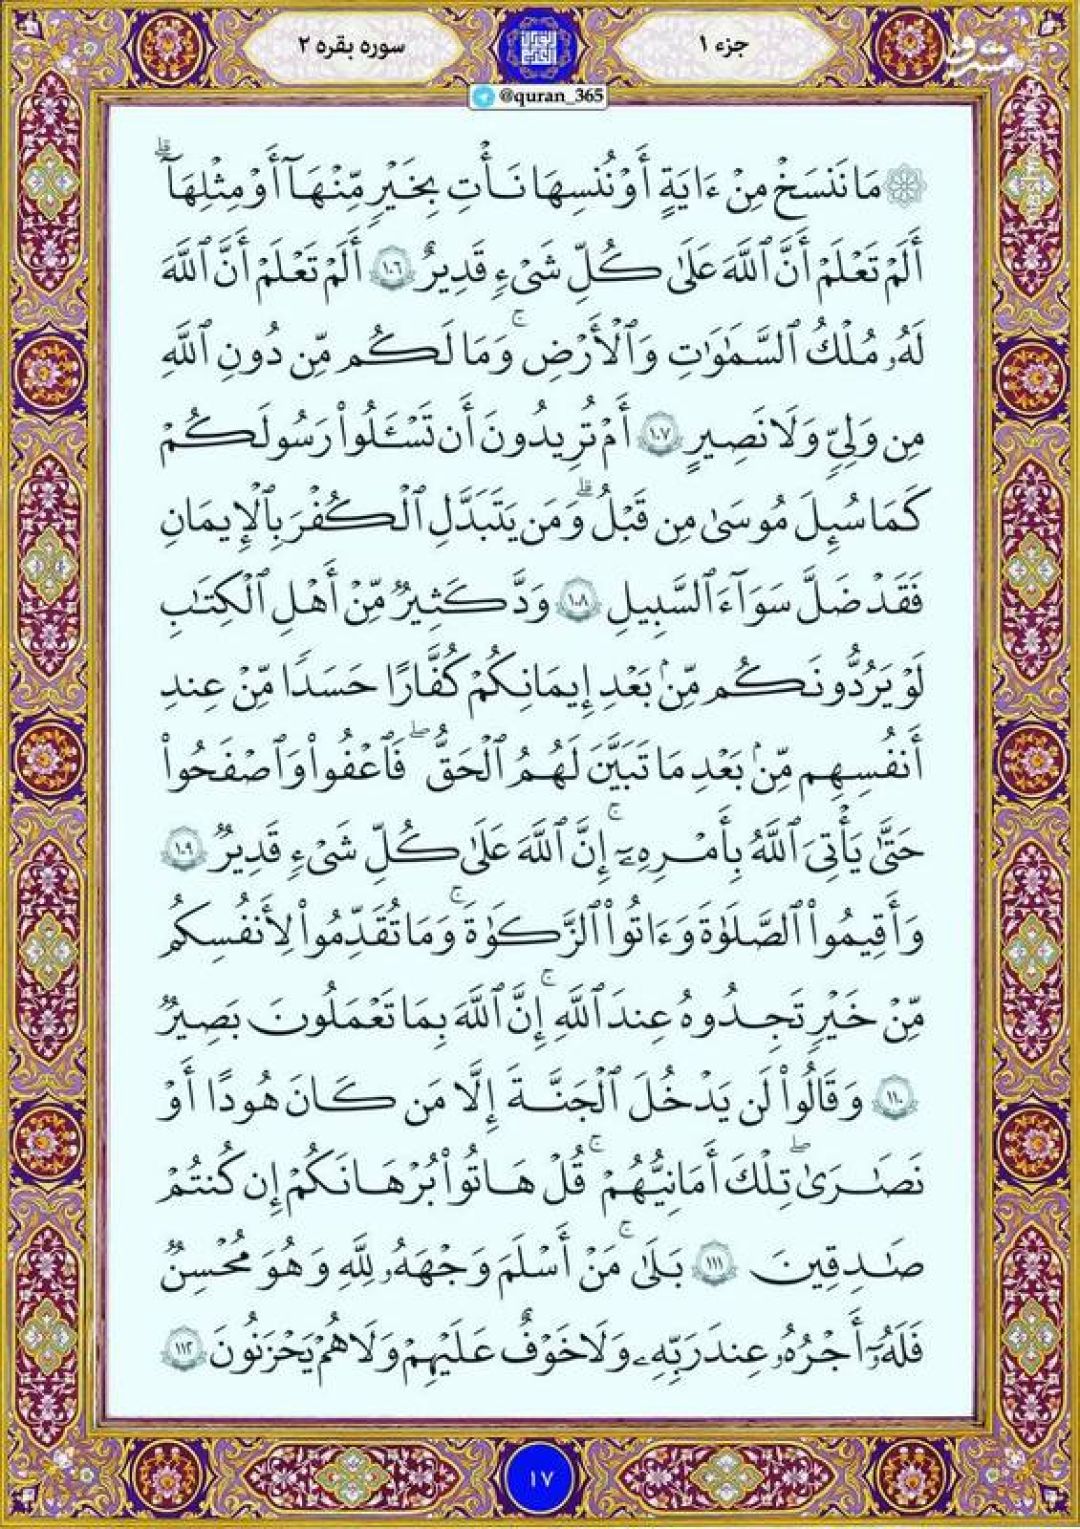 جزء ۱
سوره بقره ۲
مشرق
@quran_365
۞ مَا نَنسَخْ مِنْ ءَايَةٍ أَوْ نُنسِهَا نَأْتِ بِخَيْرٍ مِّنْهَآ أَوْ مِثْلِهَآ ۗ
أَلَمْ تَعْلَمْ أَنَّ ٱللَّهَ عَلَىٰ كُلِّ شَىْءٍ قَدِيرٌ ١٠٦ أَلَمْ تَعْلَمْ أَنَّ ٱللَّهَ
لَهُۥ مُلْكُ ٱلسَّمَـٰوَٰتِ وَٱلْأَرْضِ ۗ وَمَا لَكُم مِّن دُونِ ٱللَّهِ
مِن وَلِىٍّ وَلَا نَصِيرٍ ١٠٧ أَمْ تُرِيدُونَ أَن تَسْـَٔلُوا۟ رَسُولَكُمْ
كَمَا سُئِلَ مُوسَىٰ مِن قَبْلُ ۗ وَمَن يَتَبَدَّلِ ٱلْكُفْرَ بِٱلْإِيمَـٰنِ
فَقَدْ ضَلَّ سَوَآءَ ٱلسَّبِيلِ ١٠٨ وَدَّ كَثِيرٌ مِّنْ أَهْلِ ٱلْكِتَـٰبِ
لَوْ يَرُدُّونَكُم مِّنۢ بَعْدِ إِيمَانِكُمْ كُفَّارًا حَسَدًا مِّنْ عِندِ
أَنفُسِهِم مِّنۢ بَعْدِ مَا تَبَيَّنَ لَهُمُ ٱلْحَقُّ ۖ فَٱعْفُوا۟ وَٱصْفَحُوا۟
حَتَّىٰ يَأْتِىَ ٱللَّهُ بِأَمْرِهِۦٓ ۗ إِنَّ ٱللَّهَ عَلَىٰ كُلِّ شَىْءٍ قَدِيرٌ ١٠٩
وَأَقِيمُوا۟ ٱلصَّلَوٰةَ وَءَاتُوا۟ ٱلزَّكَوٰةَ ۚ وَمَا تُقَدِّمُوا۟ لِأَنفُسِكُم
مِّنْ خَيْرٍ تَجِدُوهُ عِندَ ٱللَّهِ ۗ إِنَّ ٱللَّهَ بِمَا تَعْمَلُونَ بَصِيرٌ
١١٠ وَقَالُوا۟ لَن يَدْخُلَ ٱلْجَنَّةَ إِلَّا مَن كَانَ هُودًا أَوْ
نَصَـٰرَىٰ ۗ تِلْكَ أَمَانِيُّهُمْ ۗ قُلْ هَاتُوا۟ بُرْهَـٰنَكُمْ إِن كُنتُمْ
صَـٰدِقِينَ ١١١ بَلَىٰ ۚ مَنْ أَسْلَمَ وَجْهَهُۥ لِلَّهِ وَهُوَ مُحْسِنٌ
فَلَهُۥٓ أَجْرُهُۥ عِندَ رَبِّهِۦ وَلَا خَوْفٌ عَلَيْهِمْ وَلَا هُمْ يَحْزَنُونَ ١١٢
١٧